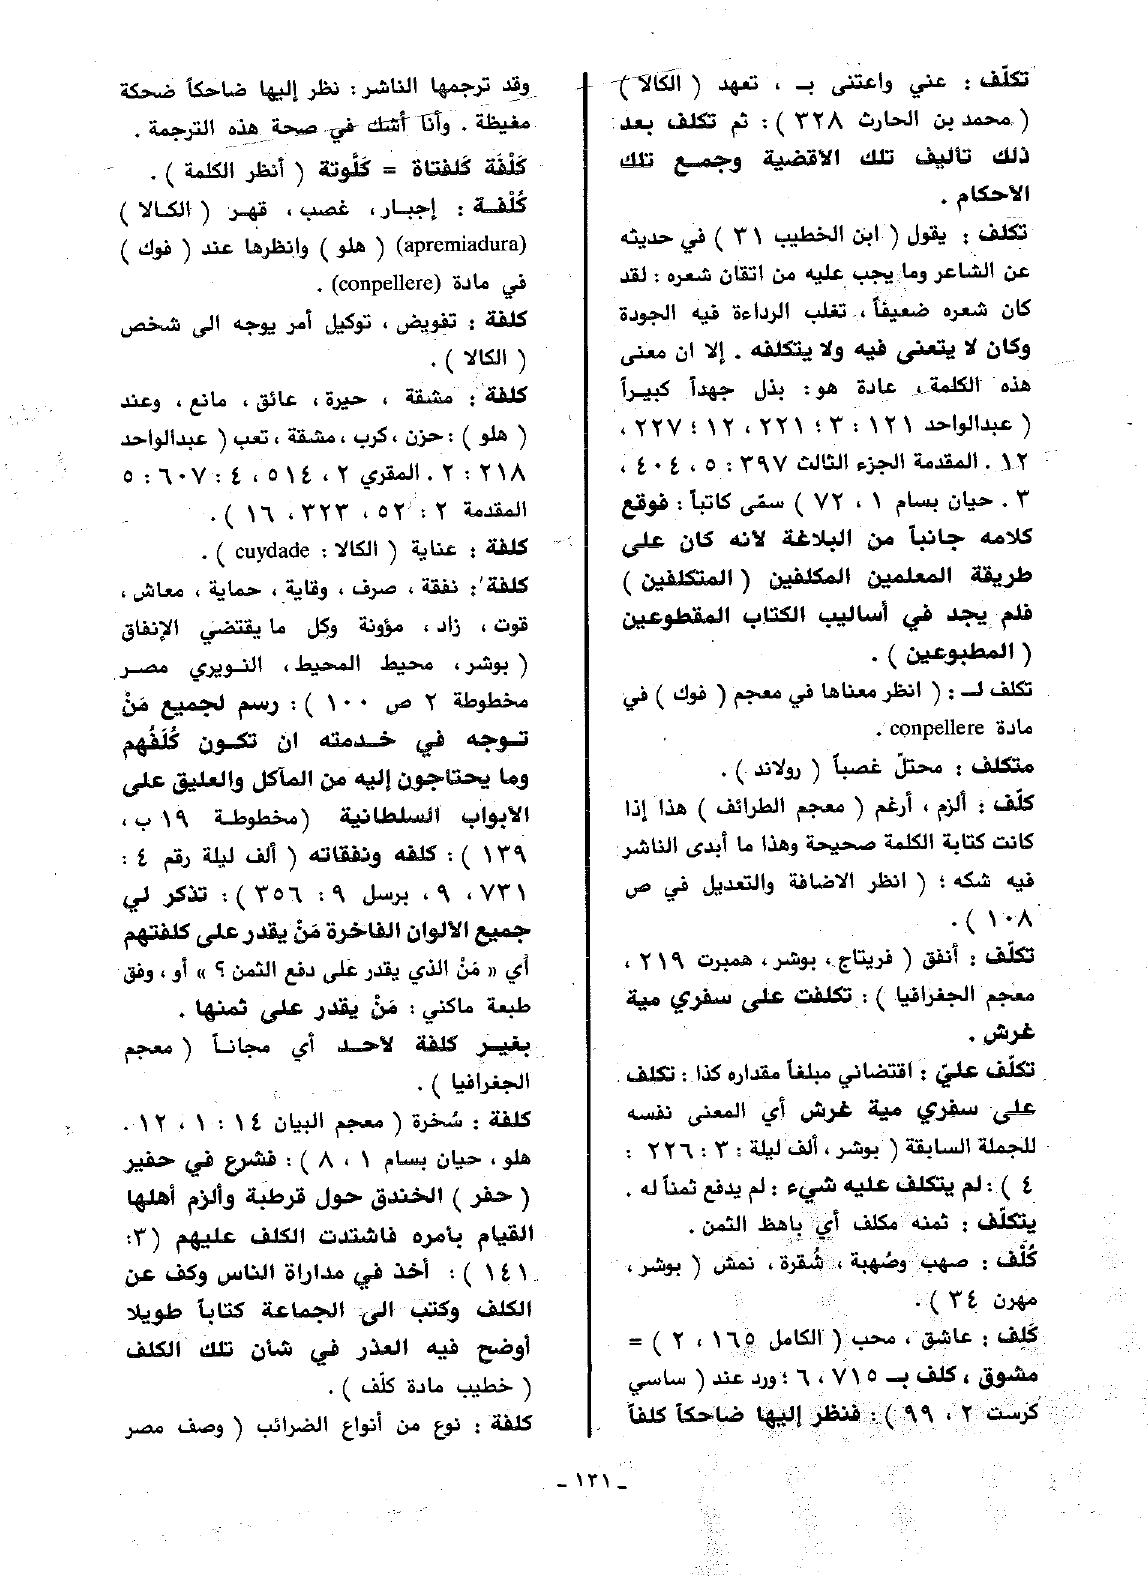 تكلّف : عني واعتنى بـ ، تعهد ( الكالا )
( محمد بن الحارث ٣٢٨ ) : ثم تكلف بعد
ذلك تأليف تلك الاقضية وجمع تلك
الاحكام .
تكلف : يقول ( ابن الخطيب ٣١ ) في حديثه
عن الشاعر وما يجب عليه من اتقان شعره : لقد
كان شعره ضعيفاً ، تغلب الرداءة فيه الجودة
وكان لا يتعنى فيه ولا يتكلفه . إلا ان معنى
هذه الكلمة ، عادة هو : بذل جهداً كبيراً
( عبدالواحد ١٢١ : ٣ ؛ ٢٢١ ، ١٢ ؛ ٢٢٧ ،
١٢ . المقدمة الجزء الثالث ٣٩٧ : ٥ ، ٤٠٤ ،
٣ . حيان بسام ١ ، ٧٢ ) سمّى كاتباً : فوقع
كلامه جانباً من البلاغة لانه كان على
طريقة المعلمين المكلفين ( المتكلفين )
فلم يجد في أساليب الكتاب المقطوعين
( المطبوعين ) .
تكلف لـ : ( انظر معناها في معجم ( فوك ) في
مادة conpellere .
متكلف : محتلّ غصباً ( رولاند ) .
كلّف : ألزم ، أرغم ( معجم الطرائف ) هذا إذا
كانت كتابة الكلمة صحيحة وهذا ما أبدى الناشر
فيه شكه ؛ ( انظر الاضافة والتعديل في ص
١٠٨ ) .
تكلّف : أنفق ( فريتاج ، بوشر ، همبرت ٢١٩ ،
معجم الجغرافيا ) : تكلفت على سفري مية
غرش .
تكلّف عليّ : اقتضاني مبلغاً مقداره كذا : تكلف
على سفري مية غرش أي المعنى نفسه
للجملة السابقة ( بوشر ، ألف ليلة : ٣ : ٢٢٦ :
٤ ) : لم يتكلف عليه شيء : لم يدفع ثمناً له .
يتكلّف : ثمنه مكلف أي باهظ الثمن .
كُلْف : صهب وصُهبة ، شُقرة ، نمش ( بوشر ،
مهرن ٣٤ ) .
كَلِف : عاشق ، محب ( الكامل ١٦٥ ، ٢ ) =
مشوق ، كلف بـ ٧١٥ ، ٦ ؛ ورد عند ( ساسي
كرست ٢ ، ٩٩ ) : فنظر إليها ضاحكاً كلفاً
وقد ترجمها الناشر : نظر إليها ضاحكاً ضحكة
مغيظة . وأنا أشك في صحة هذه الترجمة .
كَلْفَة كَلفتاة = كَلَّوتة ( أنظر الكلمة ) .
كُلْفَة : إجبار ، غصب ، قهر ( الكالا )
(apremiadura) ( هلو ) وانظرها عند ( فوك )
في مادة (conpellere) .
كلفة : تفويض ، توكيل أمر يوجه الى شخص
( الكالا ) .
كلفة : مشقة ، حيرة ، عائق ، مانع ، وعند
( هلو ) : حزن ، كرب ، مشقة ، تعب ( عبدالواحد
٢١٨ : ٢ . المقري ٢ ، ٥١٤ ، ٤ : ٦٠٧ : ٥
المقدمة ٢ : ٥٢ ، ٣٢٣ ، ١٦ ) .
كلفة : عناية ( الكالا : cuydade ) .
كلفة : نفقة ، صرف ، وقاية ، حماية ، معاش ،
قوت ، زاد ، مؤونة وكل ما يقتضي الإنفاق
( بوشر ، محيط المحيط ، النويري مصر
مخطوطة ٢ ص ١٠٠ ) : رسم لجميع مَنْ
توجه في خدمته ان تكون كُلَفُهم
وما يحتاجون إليه من المآكل والعليق على
الابواب السلطانية ( مخطوطة ١٩ ب ،
١٣٩ ) : كلفه ونفقاته ( ألف ليلة رقم ٤ :
٧٣١ ، ٩ ، برسل ٩ : ٣٥٦ ) : تذكر لي
جميع الالوان الفاخرة مَنْ يقدر على كلفتهم
أي « مَنْ الذي يقدر على دفع الثمن ؟ » أو ، وفق
طبعة ماكني : مَنْ يقدر على ثمنها .
بغير كلفة لاحد أي مجاناً ( معجم
الجغرافيا ) .
كلفة : سُخرة ( معجم البيان ١٤ : ١ ، ١٢ .
هلو ، حيان بسام ١ ، ٨ ) : فشرع في حفير
( حفر ) الخندق حول قرطبة وألزم أهلها
القيام بأمره فاشتدت الكلف عليهم ( ٣ :
١٤١ ) : أخذ في مداراة الناس وكف عن
الكلف وكتب الى الجماعة كتاباً طويلا
أوضح فيه العذر في شأن تلك الكلف
( خطيب مادة كلّف ) .
كلفة : نوع من أنواع الضرائب ( وصف مصر
- ١٣١ -